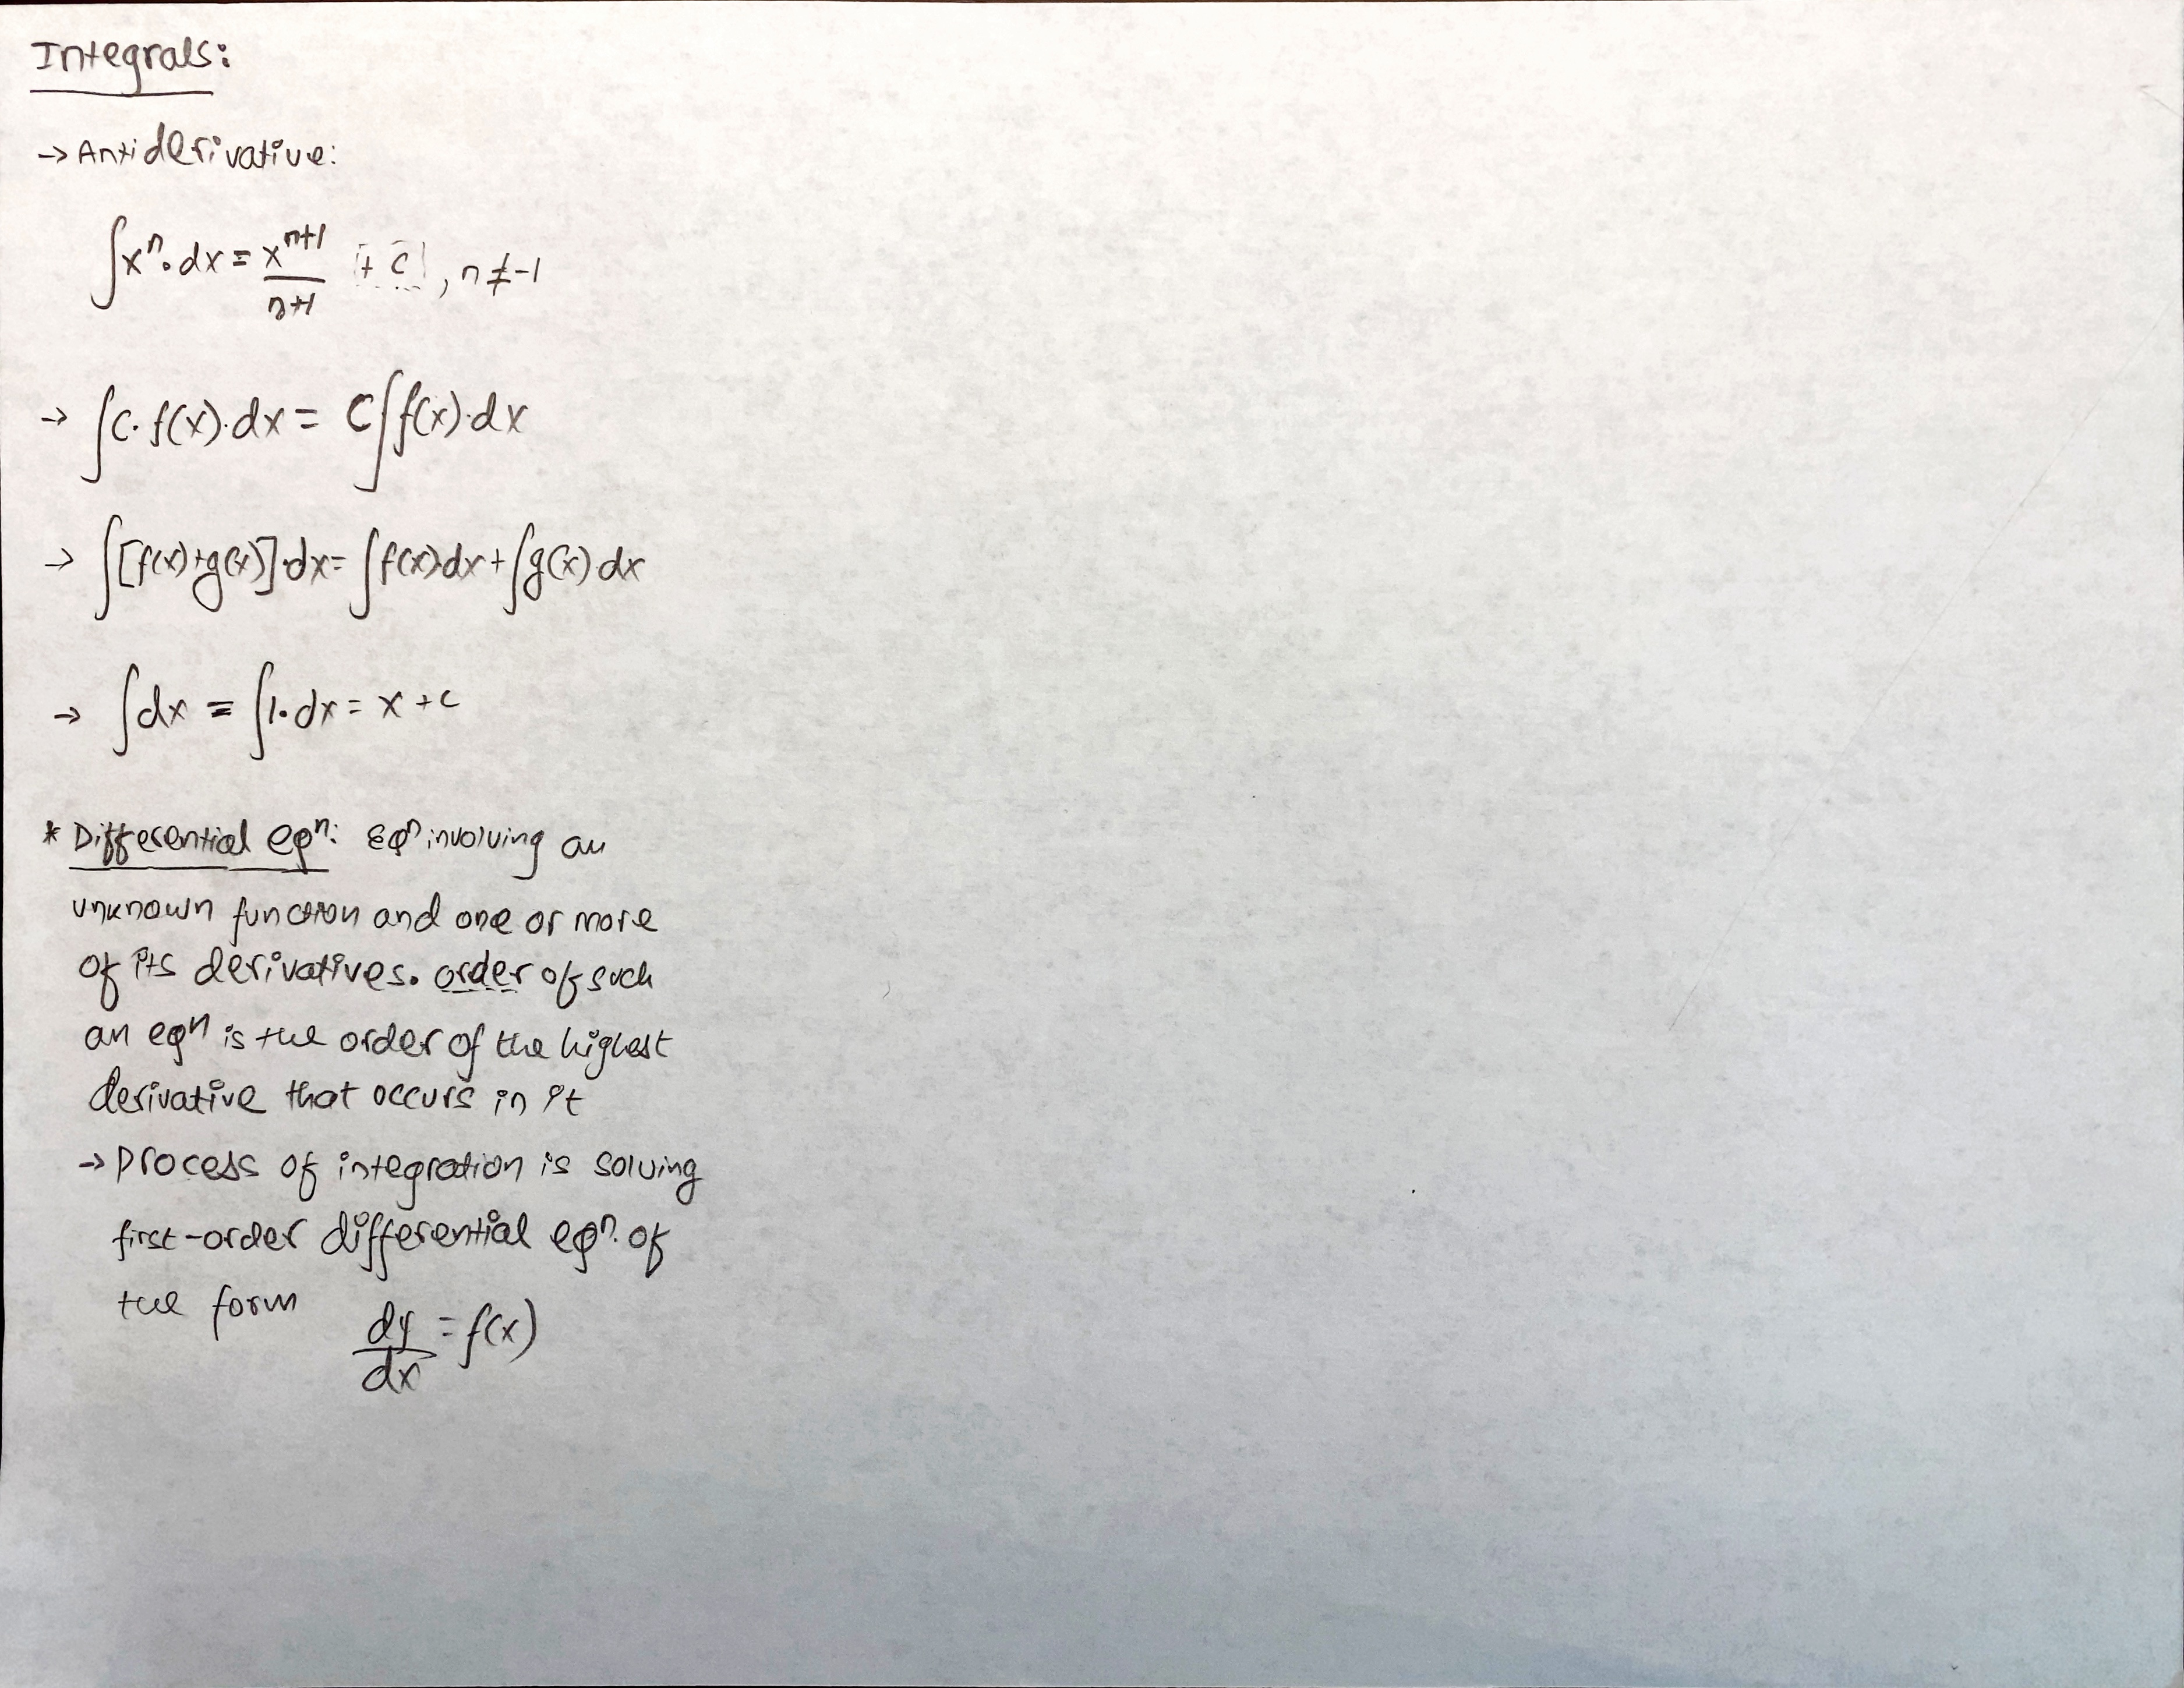 Integrals:
→ Antiderivative:
∫xⁿ·dx = xⁿ⁺¹/n+1 + C, n ≠ -1
→ ∫c·f(x)·dx = C∫f(x)·dx
→ ∫[f(x)+g(x)]·dx = ∫f(x)·dx + ∫g(x)·dx
→ ∫dx = ∫1·dx = x + c
* Differential eqⁿ: Eqⁿ involving an
unknown function and one or more
of its derivatives. order of such
an eqⁿ is the order of the highest
derivative that occurs in it
→ Process of integration is solving
first-order differential eqⁿ. of
the form
dy/dx = f(x)